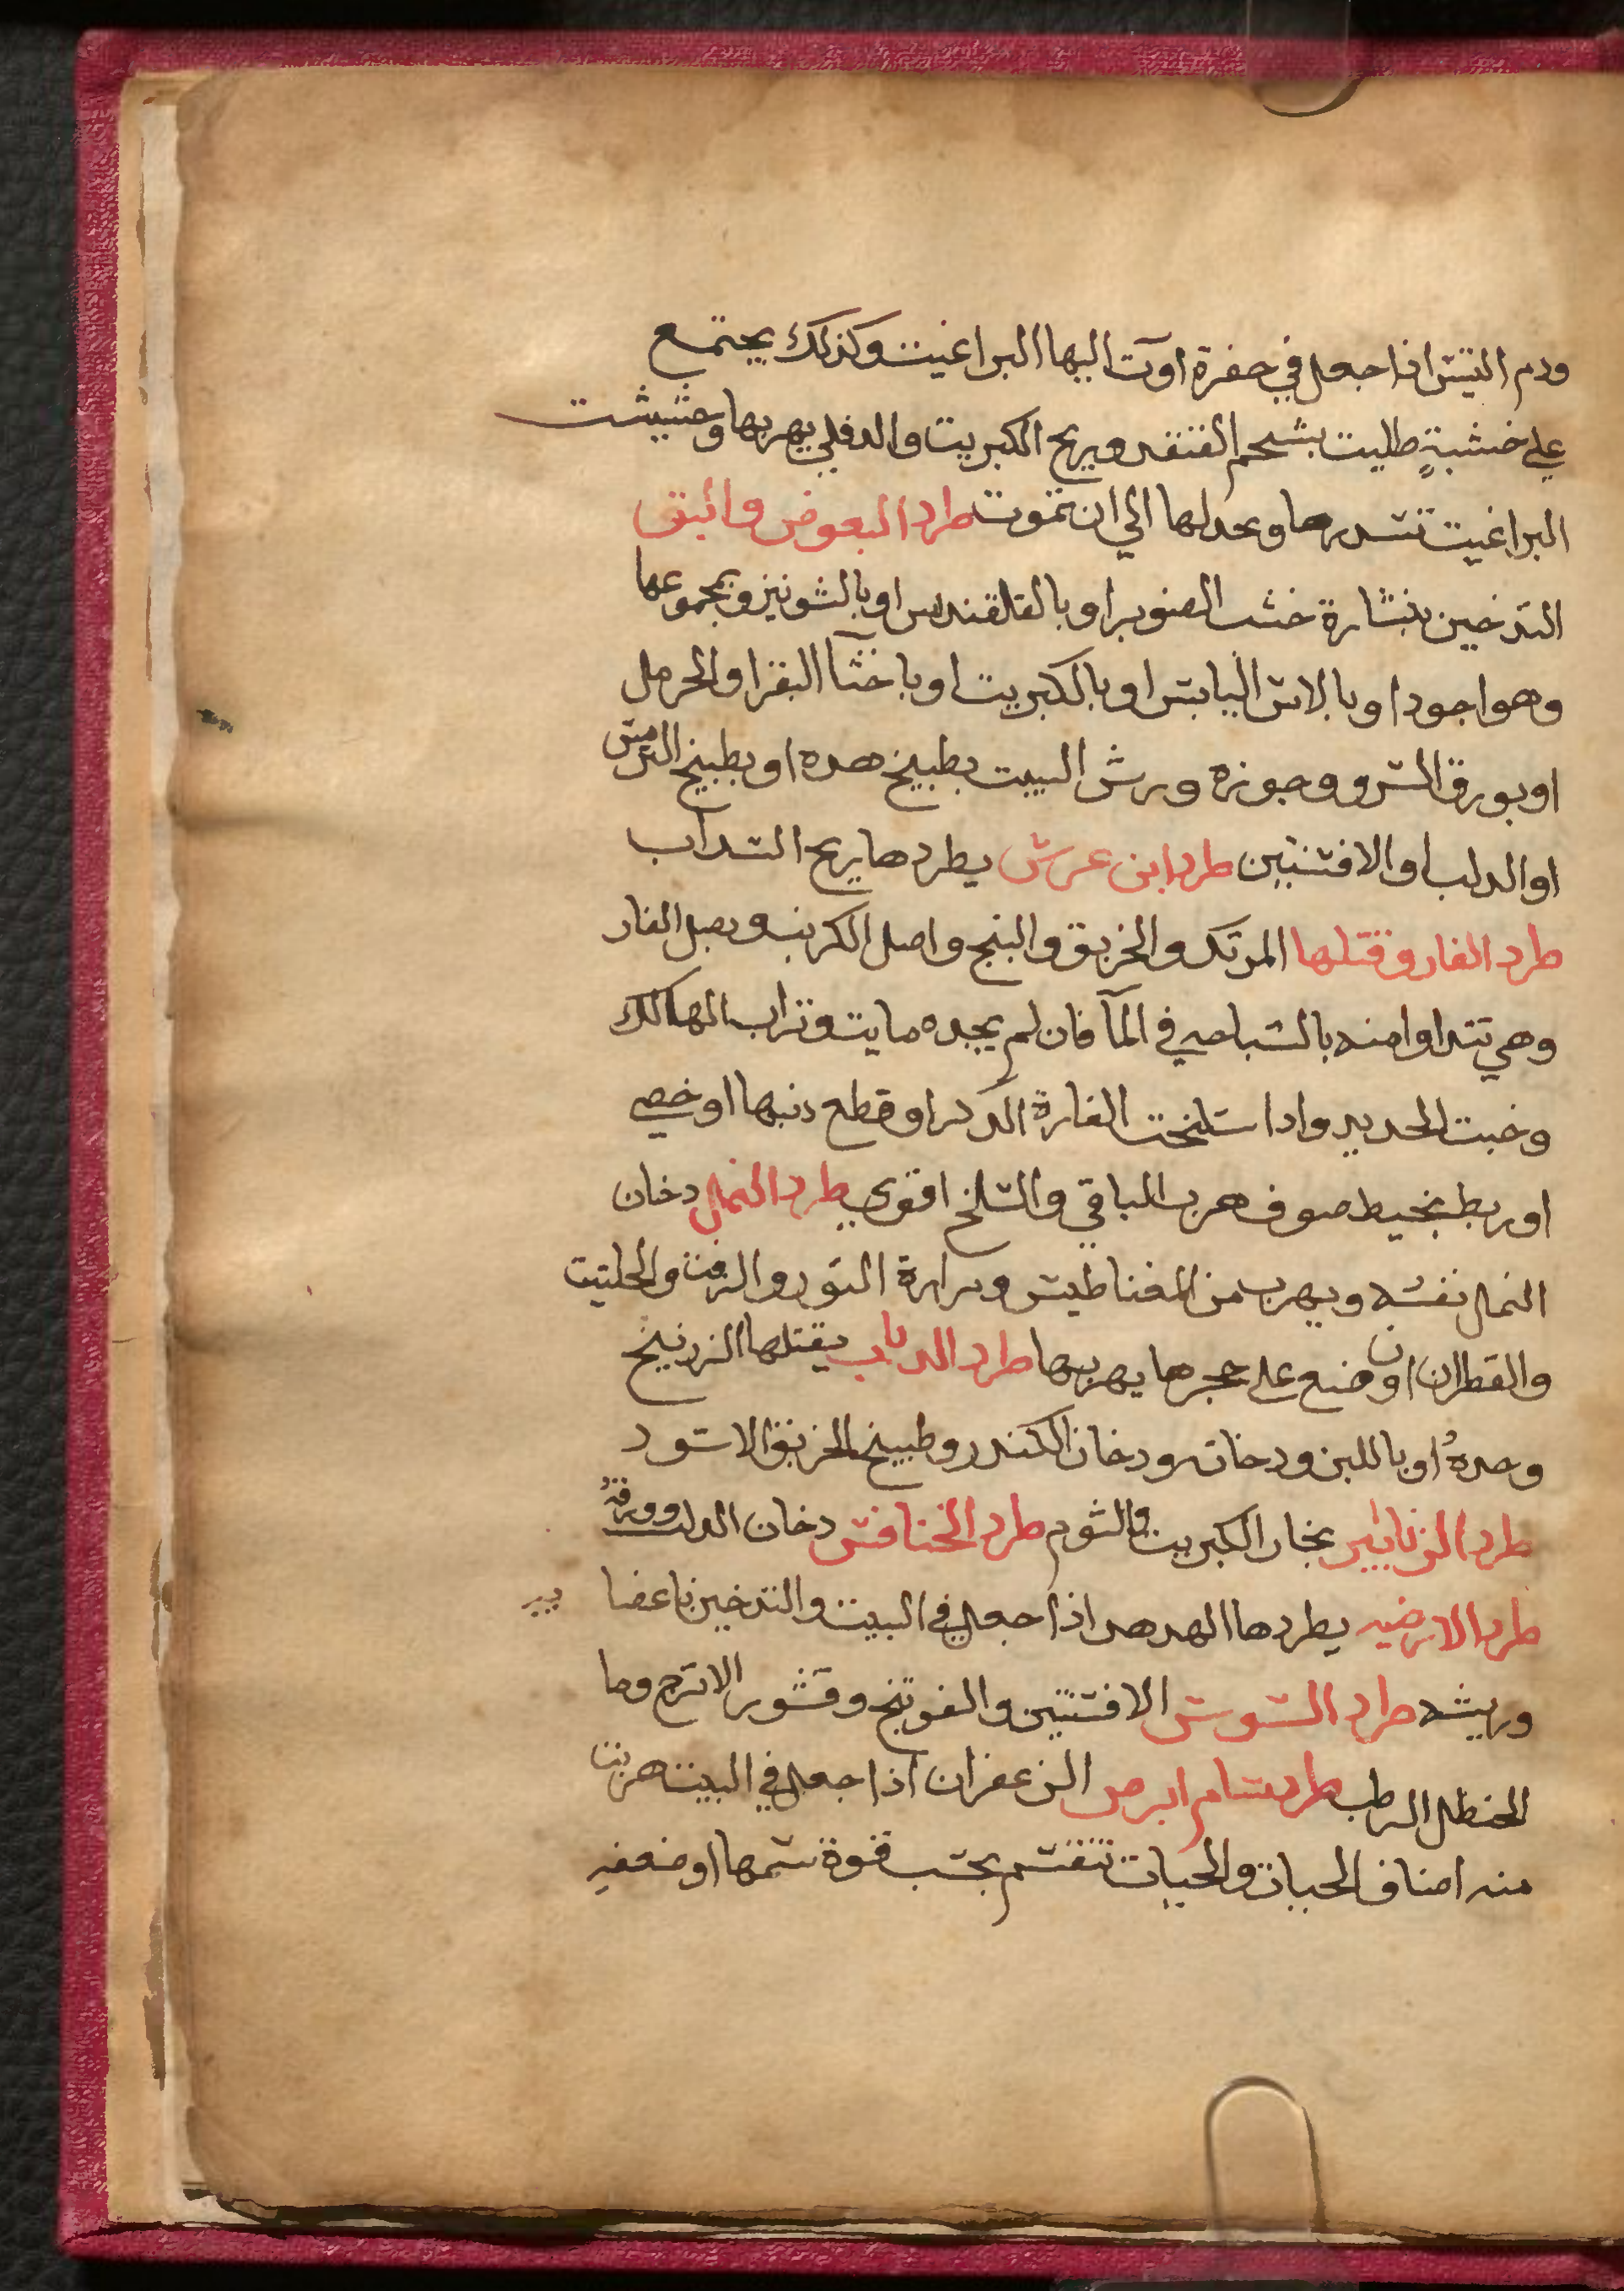 ودم التيس اذا جعل في حفرة اوت اليها البراغيت وكذلك يجتمع
علي خشبةٍ طليت بشحم القنفد وبريح الكبريت والدفلي يهربها وحشيشت
البراغيت تسدرها وبحدلها الي ان تموت طرد البعوض والبق
التدخين بنشارة خشب الصنوبر او بالقلقندس او بالشونيز وبمجموعها
وهو اجود او بالاس اليابس او بالكبريت او باخثآ البقر او الحرمل
او بورق السرو وجوزه ورش البيت بطبيخ هده او بطبيخ الترمس
او الدلب او الافسنتين طرد ابن عرس يطردها ريح السداب
طرد الفار وقتلها المرتك والخربق والبنج واصل الكرنب وبصل الفار
وهي تتداوا منه بالسباحه في المآ فان لم يجده مايت وتراب الهالك
وخبت الحديد وادا سلخت الفارة الدكر او قطع دنبها او خصي
او ربط بخيط صوف هرب الباقي والسلخ اقوي طرد النمل دخان
النمل نفسه ويهرب من المغناطيس ومرارة التور والزفت والحلتيت
والقطران ان وضع علي حجرها يهربها طرد الدباب يقتلها الزرنيخ
وحدهُ او باللبن ودخانه ودخان الكندر وطبيخ الخربق الاسود
طرد الزنابير بخار الكبريت والثوم طرد الخنافس دخان الدلب وورقهُ
طرد الارضيه يطردها الهدهد اذا جعل في البيت والتدخين باعضا
وريشه طرد السوس الافسنتين والفوتنج وقشور الاترج وما
الحنظل الرطب طرد سام ابرص الزعفران اذا جعل في البيت هربت
منه اصناف الحيات والحيات تنقسم بحسب قوة سمها او ضعفه